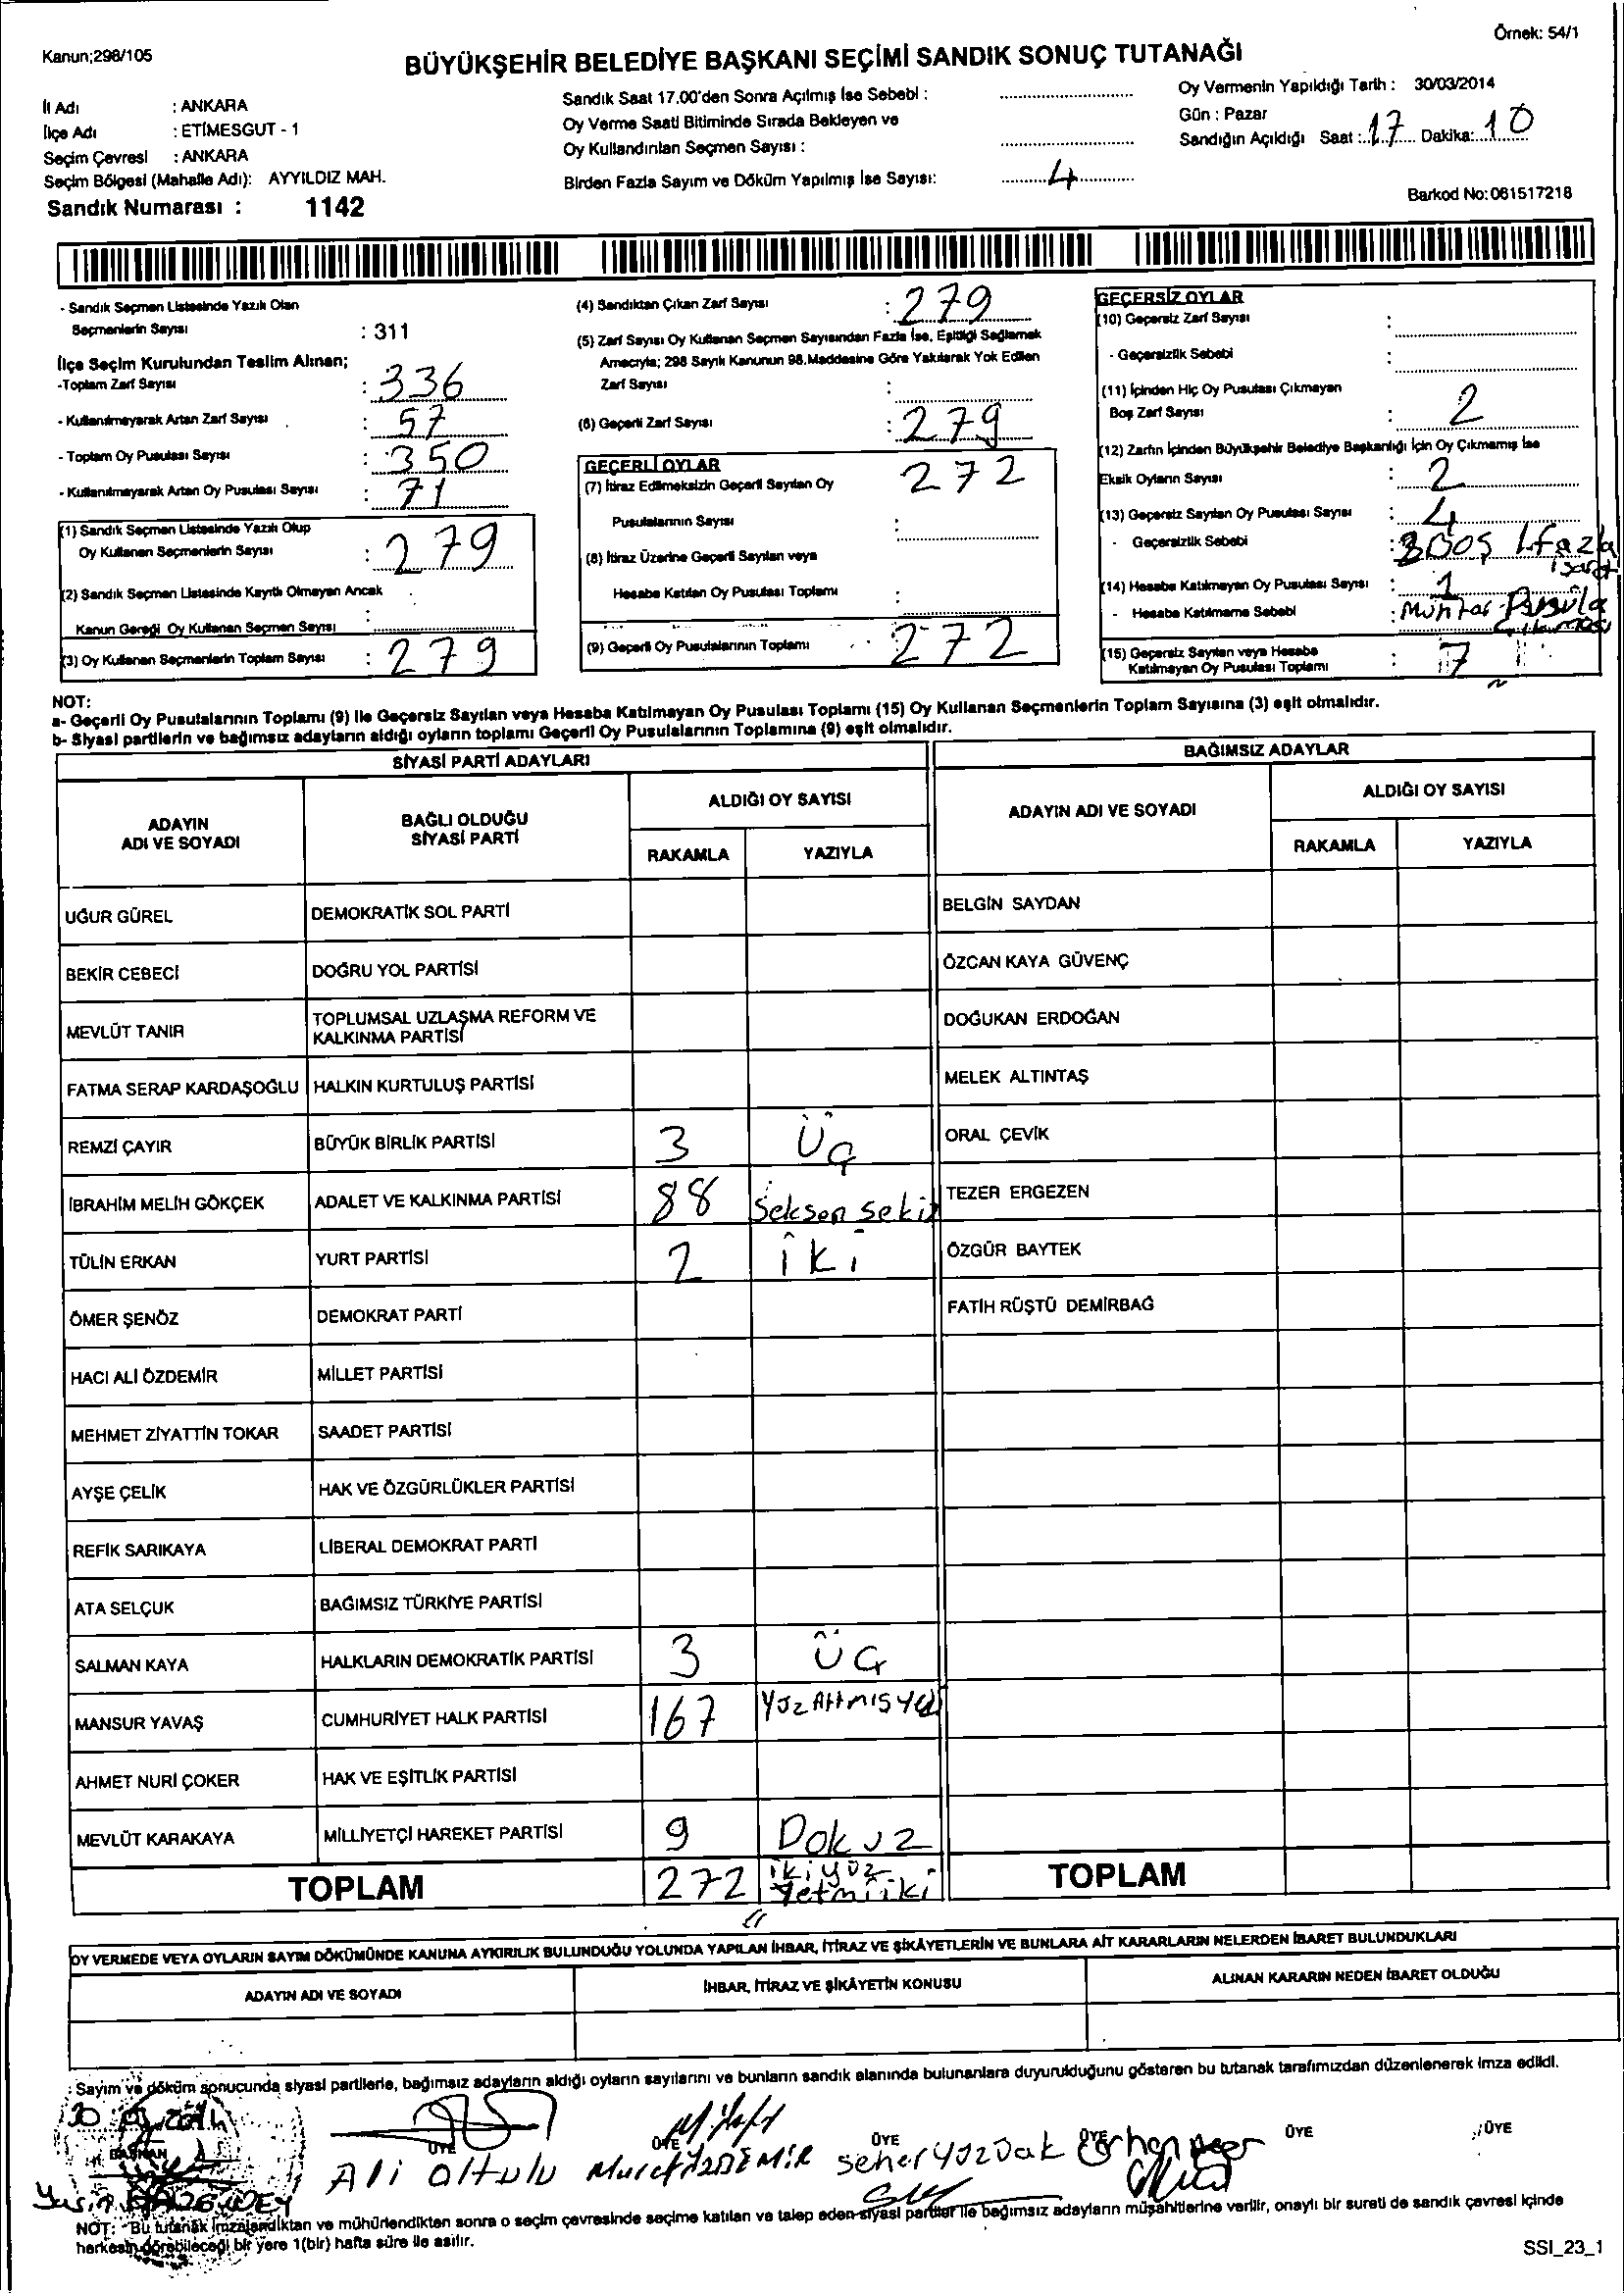 Kanun;298/105
Örnek: 54/1
BÜYÜKŞEHİR BELEDİYE BAŞKANI SEÇİMİ SANDIK SONUÇ TUTANAĞI
İl Adı : ANKARA
İlçe Adı : ETİMESGUT - 1
Seçim Çevresi : ANKARA
Seçim Bölgesi (Mahalle Adı): AYYILDIZ MAH.
Sandık Numarası : 1142
Sandık Saat 17.00'den Sonra Açılmış İse Sebebi :
Oy Verme Saati Bitiminde Sırada Bekleyen ve
Oy Kullandırılan Seçmen Sayısı :
Birden Fazla Sayım ve Döküm Yapılmış İse Sayısı: 4
Oy Vermenin Yapıldığı Tarih : 30/03/2014
Gün : Pazar
Sandığın Açıldığı Saat : 17 Dakika: 10
Barkod No:061517218
- Sandık Seçmen Listesinde Yazılı Olan
Seçmenlerin Sayısı : 311
İlçe Seçim Kurulundan Teslim Alınan;
-Toplam Zarf Sayısı : 336
- Kullanılmayarak Artan Zarf Sayısı : 57
- Toplam Oy Pusulası Sayısı : 350
- Kullanılmayarak Artan Oy Pusulası Sayısı : 71
(1) Sandık Seçmen Listesinde Yazılı Olup
Oy Kullanan Seçmenlerin Sayısı : 279
(2) Sandık Seçmen Listesinde Kayıtlı Olmayan Ancak
Kanun Gereği Oy Kullanan Seçmen Sayısı :
(3) Oy Kullanan Seçmenlerin Toplam Sayısı : 279
(4) Sandıktan Çıkan Zarf Sayısı : 279
(5) Zarf Sayısı Oy Kullanan Seçmen Sayısından Fazla İse, Eşitliği Sağlamak
Amacıyla; 298 Sayılı Kanunun 98.Maddesine Göre Yakılarak Yok Edilen
Zarf Sayısı :
(6) Geçerli Zarf Sayısı : 279
GEÇERLİ OYLAR
(7) İtiraz Edilmeksizin Geçerli Sayılan Oy 272
Pusulalarının Sayısı :
(8) İtiraz Üzerine Geçerli Sayılan veya
Hesaba Katılan Oy Pusulası Toplamı :
(9) Geçerli Oy Pusulalarının Toplamı : 272
GEÇERSİZ OYLAR
(10) Geçersiz Zarf Sayısı :
- Geçersizlik Sebebi :
(11) İçinden Hiç Oy Pusulası Çıkmayan
Boş Zarf Sayısı : 2
(12) Zarfın İçinden Büyükşehir Belediye Başkanlığı İçin Oy Çıkmamış İse
Eksik Oyların Sayısı : 2
(13) Geçersiz Sayılan Oy Pusulası Sayısı : 4
- Geçersizlik Sebebi : 3 Boş 1.fazla
işaret
(14) Hesaba Katılmayan Oy Pusulası Sayısı : 1
- Hesaba Katılmama Sebebi : Muhtar Pusula
Çıkması
(15) Geçersiz Sayılan veya Hesaba
Katılmayan Oy Pusulası Toplamı : 7
NOT:
a- Geçerli Oy Pusulalarının Toplamı (9) ile Geçersiz Sayılan veya Hesaba Katılmayan Oy Pusulası Toplamı (15) Oy Kullanan Seçmenlerin Toplam Sayısına (3) eşit olmalıdır.
b- Siyasi partilerin ve bağımsız adayların aldığı oyların toplamı Geçerli Oy Pusulalarının Toplamına (9) eşit olmalıdır.
SİYASİ PARTİ ADAYLARI
BAĞIMSIZ ADAYLAR
ADAYIN
ADI VE SOYADI
BAĞLI OLDUĞU
SİYASİ PARTİ
ALDIĞI OY SAYISI
RAKAMLA YAZIYLA
ADAYIN ADI VE SOYADI
ALDIĞI OY SAYISI
RAKAMLA YAZIYLA
UĞUR GÜREL DEMOKRATİK SOL PARTİ BELGİN SAYDAN
BEKİR CEBECİ DOĞRU YOL PARTİSİ ÖZCAN KAYA GÜVENÇ
MEVLÜT TANIR TOPLUMSAL UZLAŞMA REFORM VE
KALKINMA PARTİSİ DOĞUKAN ERDOĞAN
FATMA SERAP KARDAŞOĞLU HALKIN KURTULUŞ PARTİSİ MELEK ALTINTAŞ
REMZİ ÇAYIR BÜYÜK BİRLİK PARTİSİ 3 Üç ORAL ÇEVİK
İBRAHİM MELİH GÖKÇEK ADALET VE KALKINMA PARTİSİ 88 Seksen sekiz TEZER ERGEZEN
TÜLİN ERKAN YURT PARTİSİ 2 iki ÖZGÜR BAYTEK
ÖMER ŞENÖZ DEMOKRAT PARTİ FATİH RÜŞTÜ DEMİRBAĞ
HACI ALİ ÖZDEMİR MİLLET PARTİSİ
MEHMET ZİYATTİN TOKAR SAADET PARTİSİ
AYŞE ÇELİK HAK VE ÖZGÜRLÜKLER PARTİSİ
REFİK SARIKAYA LİBERAL DEMOKRAT PARTİ
ATA SELÇUK BAĞIMSIZ TÜRKİYE PARTİSİ
SALMAN KAYA HALKLARIN DEMOKRATİK PARTİSİ 3 ÜÇ
MANSUR YAVAŞ CUMHURİYET HALK PARTİSİ 167 YüzAtmışyedi
AHMET NURİ ÇOKER HAK VE EŞİTLİK PARTİSİ
MEVLÜT KARAKAYA MİLLİYETÇİ HAREKET PARTİSİ 9 Dokuz
TOPLAM 272 ikiyüz
Yetmiiki TOPLAM
OY VERMEDE VEYA OYLARIN SAYIM DÖKÜMÜNDE KANUNA AYKIRILIK BULUNDUĞU YOLUNDA YAPILAN İHBAR, İTİRAZ VE ŞİKÂYETLERİN VE BUNLARA AİT KARARLARIN NELERDEN İBARET BULUNDUKLARI
ADAYIN ADI VE SOYADI İHBAR, İTİRAZ VE ŞİKÂYETİN KONUSU ALINAN KARARIN NEDEN İBARET OLDUĞU
Sayım ve döküm sonucunda siyasi partilerle, bağımsız adayların aldığı oyların sayılarını ve bunların sandık alanında bulunanlara duyurulduğunu gösteren bu tutanak tarafımızdan düzenlenerek imza edildi.
BAŞKAN ÜYE ÜYE ÜYE ÜYE ÜYE ÜYE
Yasin Ali altulu Murat ÖZDEMİR Seher yüzüak Orhan
NOT: Bu tutanak imzalandıktan ve mühürlendikten sonra o seçim çevresinde seçime katılan ve talep eden siyasi partiler ile bağımsız adayların müşahitlerine verilir, onaylı bir sureti de sandık çevresi içinde
herkesin görebileceği bir yere 1(bir) hafta süre ile asılır.
SSI_23_1